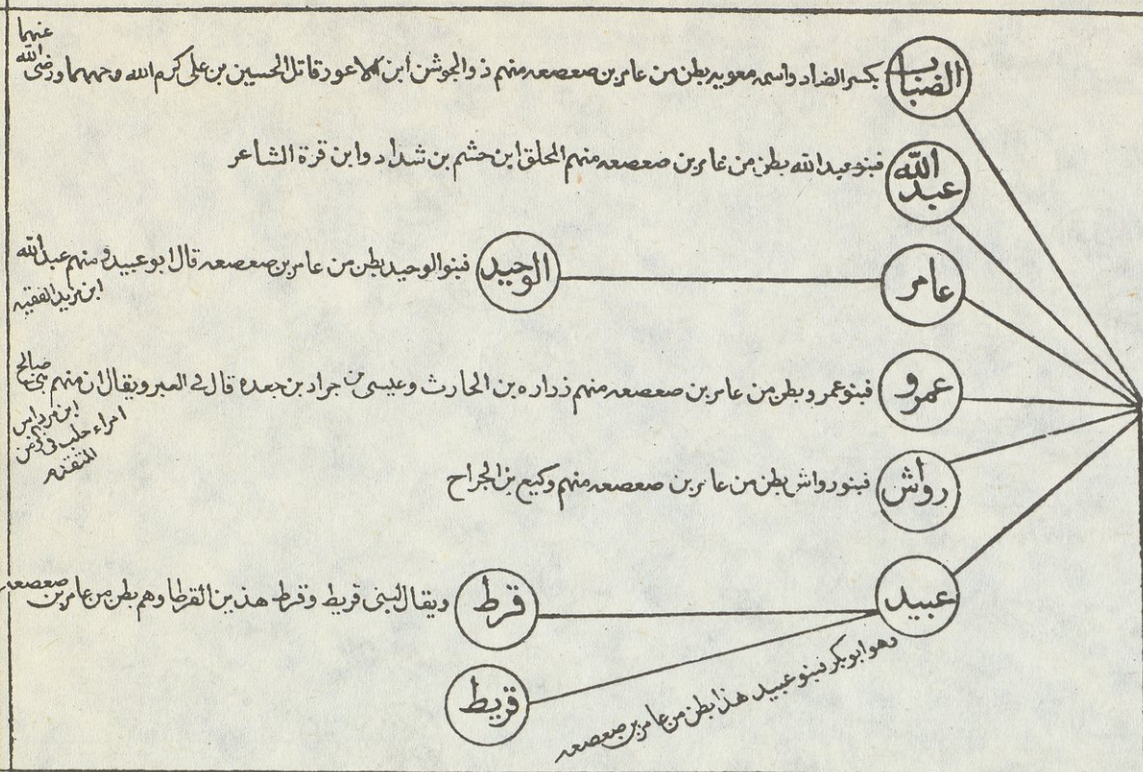 الضباب
بكسر الضاد واسمه معويه بطن من عامر بن صعصعه منهم ذو الجوشن ابن الاعور قاتل الحسين بن على كرم الله وجههما ورضى الله
عنهما
عبد الله
فبنو عبد الله بطن من عامر بن صعصعه منهم المحلق ابن حشم بن شداد وابن قرة الشاعر
عامر
الوحيد
فبنوا لوحيد بطن من عامر بن صعصعه قال ابو عبيد و منهم عبد الله
ابن يزيد الفقيه
عمرو
فبنو عمرو بطن من عامر بن صعصعه منهم زراره بن الحارث وعيسى بن جراد بن جعده قال في العبر ويقال ان منهم بنى صالح
ابن مرداس
امراء حلب فى
رواش
فبنو رواش بطن من عامر بن صعصعه منهم وكيع بن الجراح
عبيد
وهو ابو بكر فبنو عبيد هذا بطن من عامر بن صعصعه
قرط
ويقال لبنى قريط وقرط هذين القرطا وهم بطن من عامر بن صعصعه
قريط